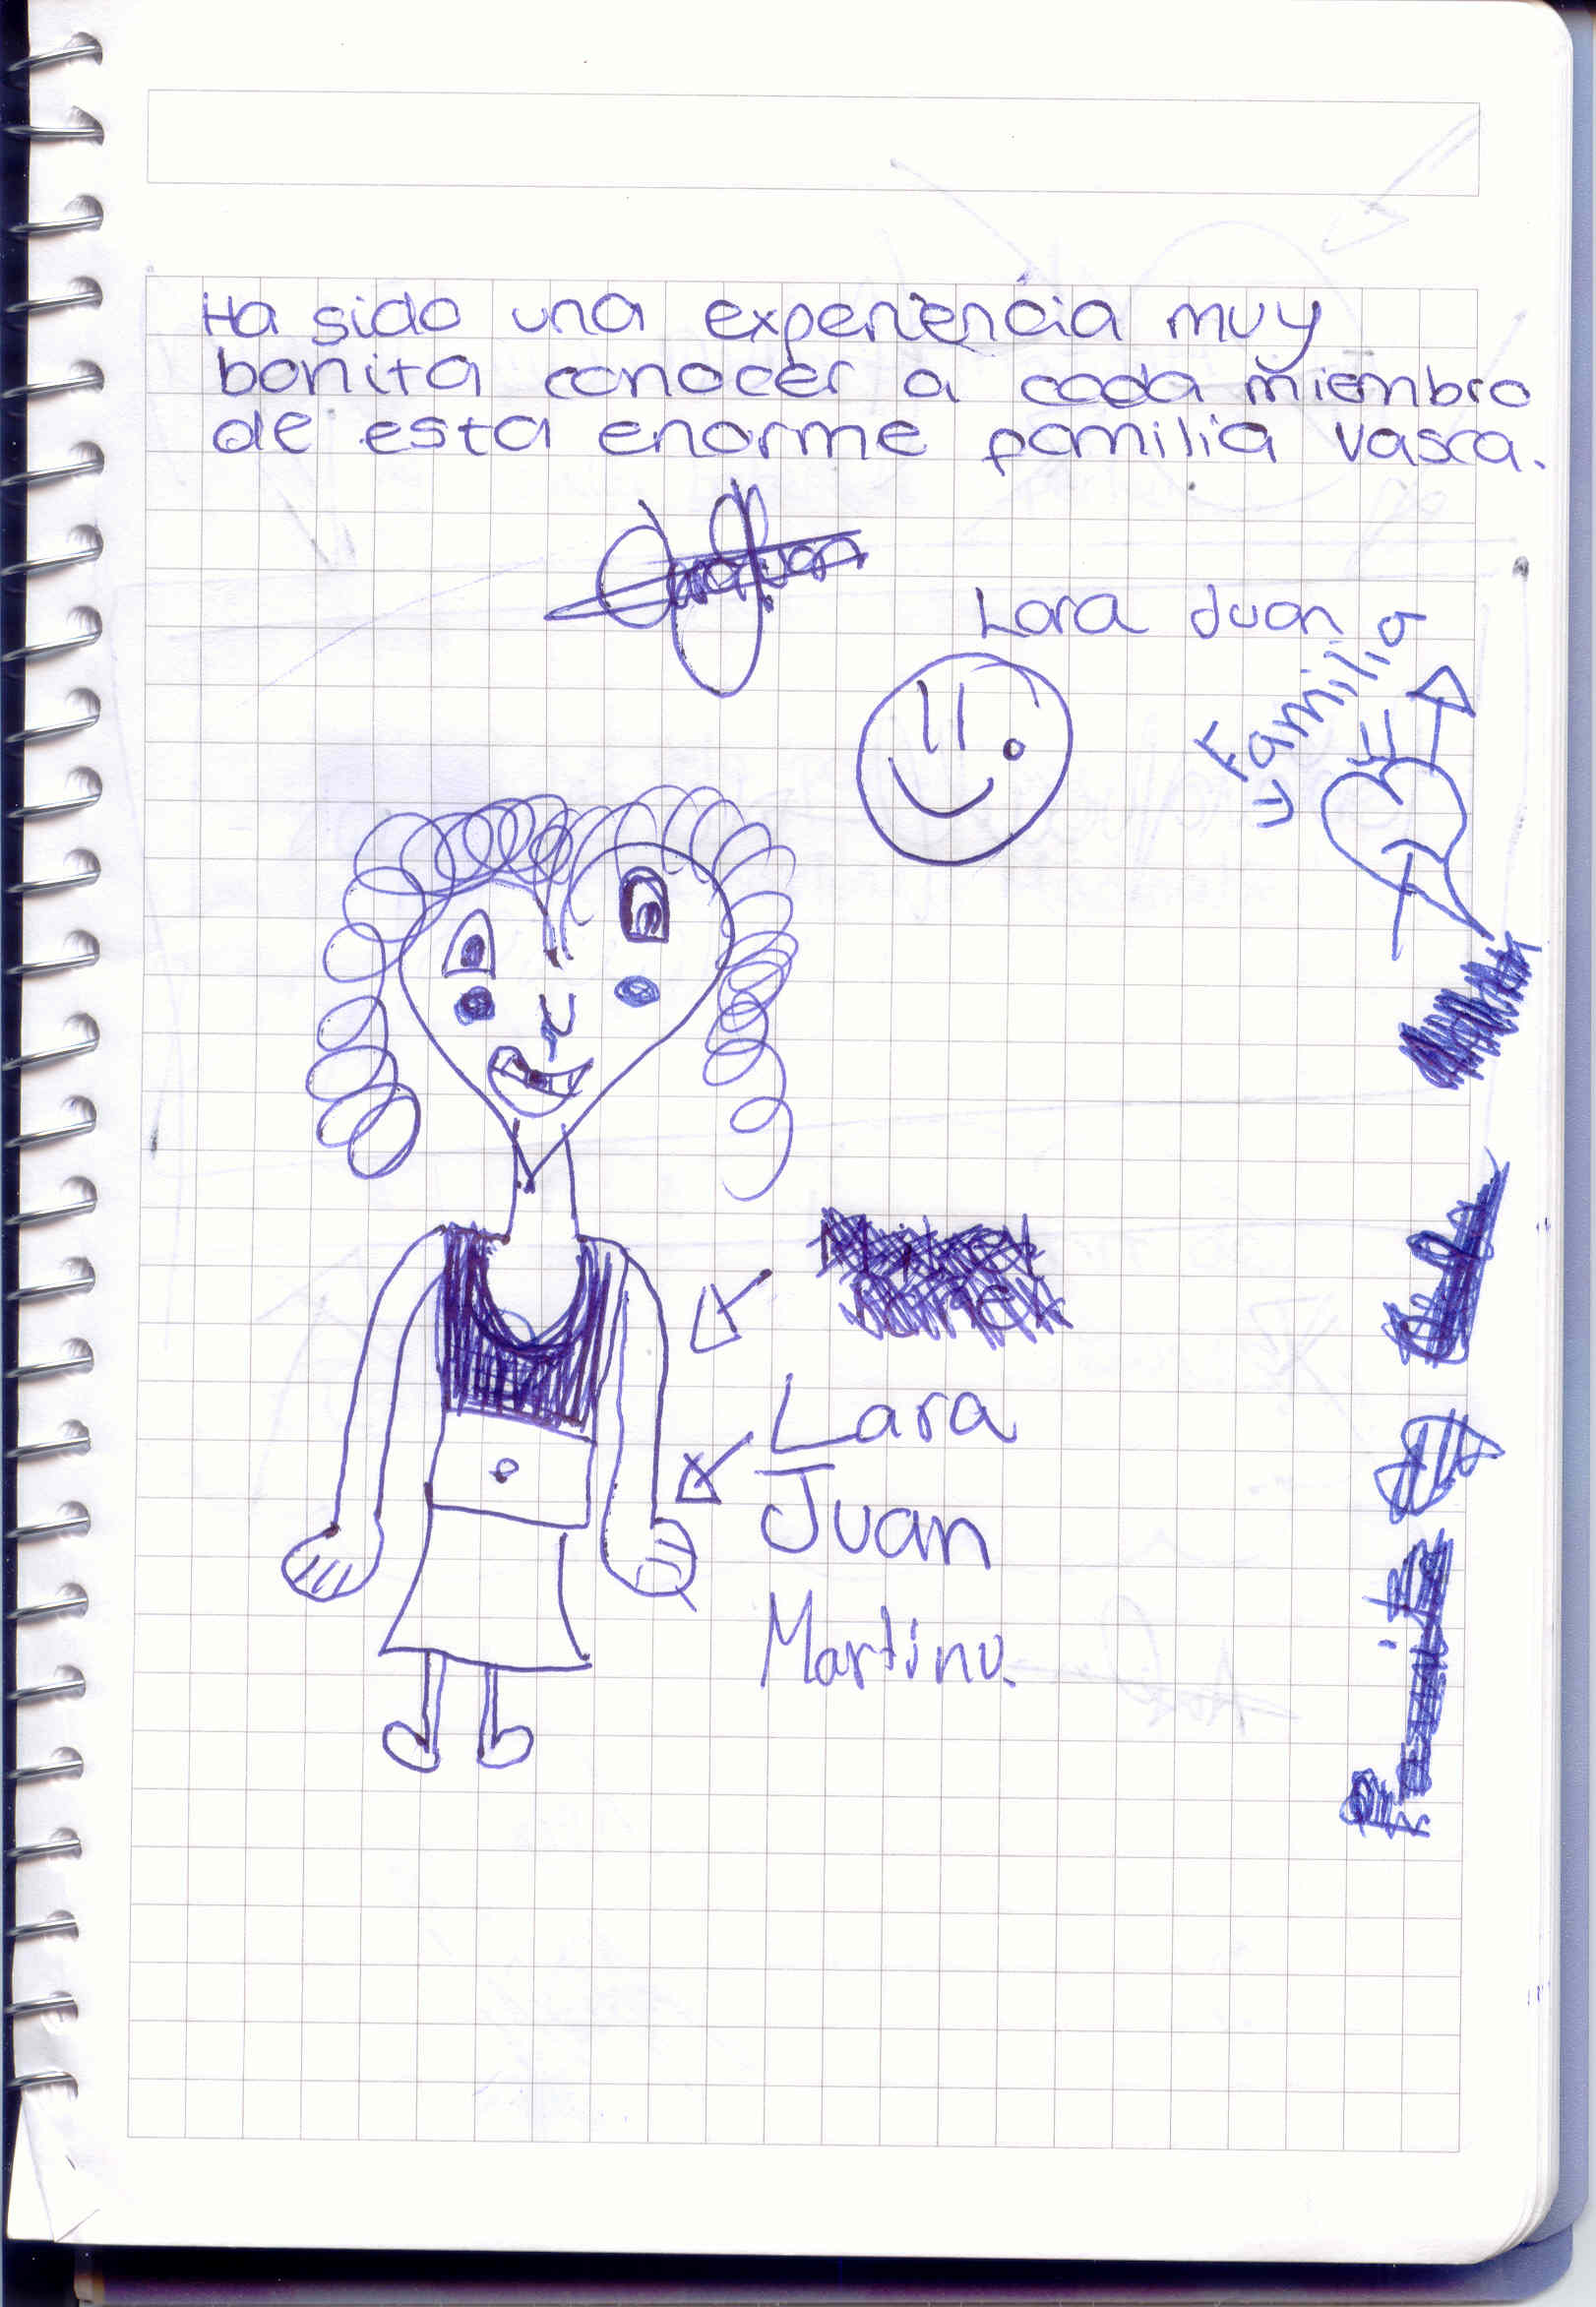 Ha sido una experiencia muy
bonita conocer a cada miembro
de esta enorme familia vasca.
Lara Juan
Familia
Lara
Juan
Martinu.